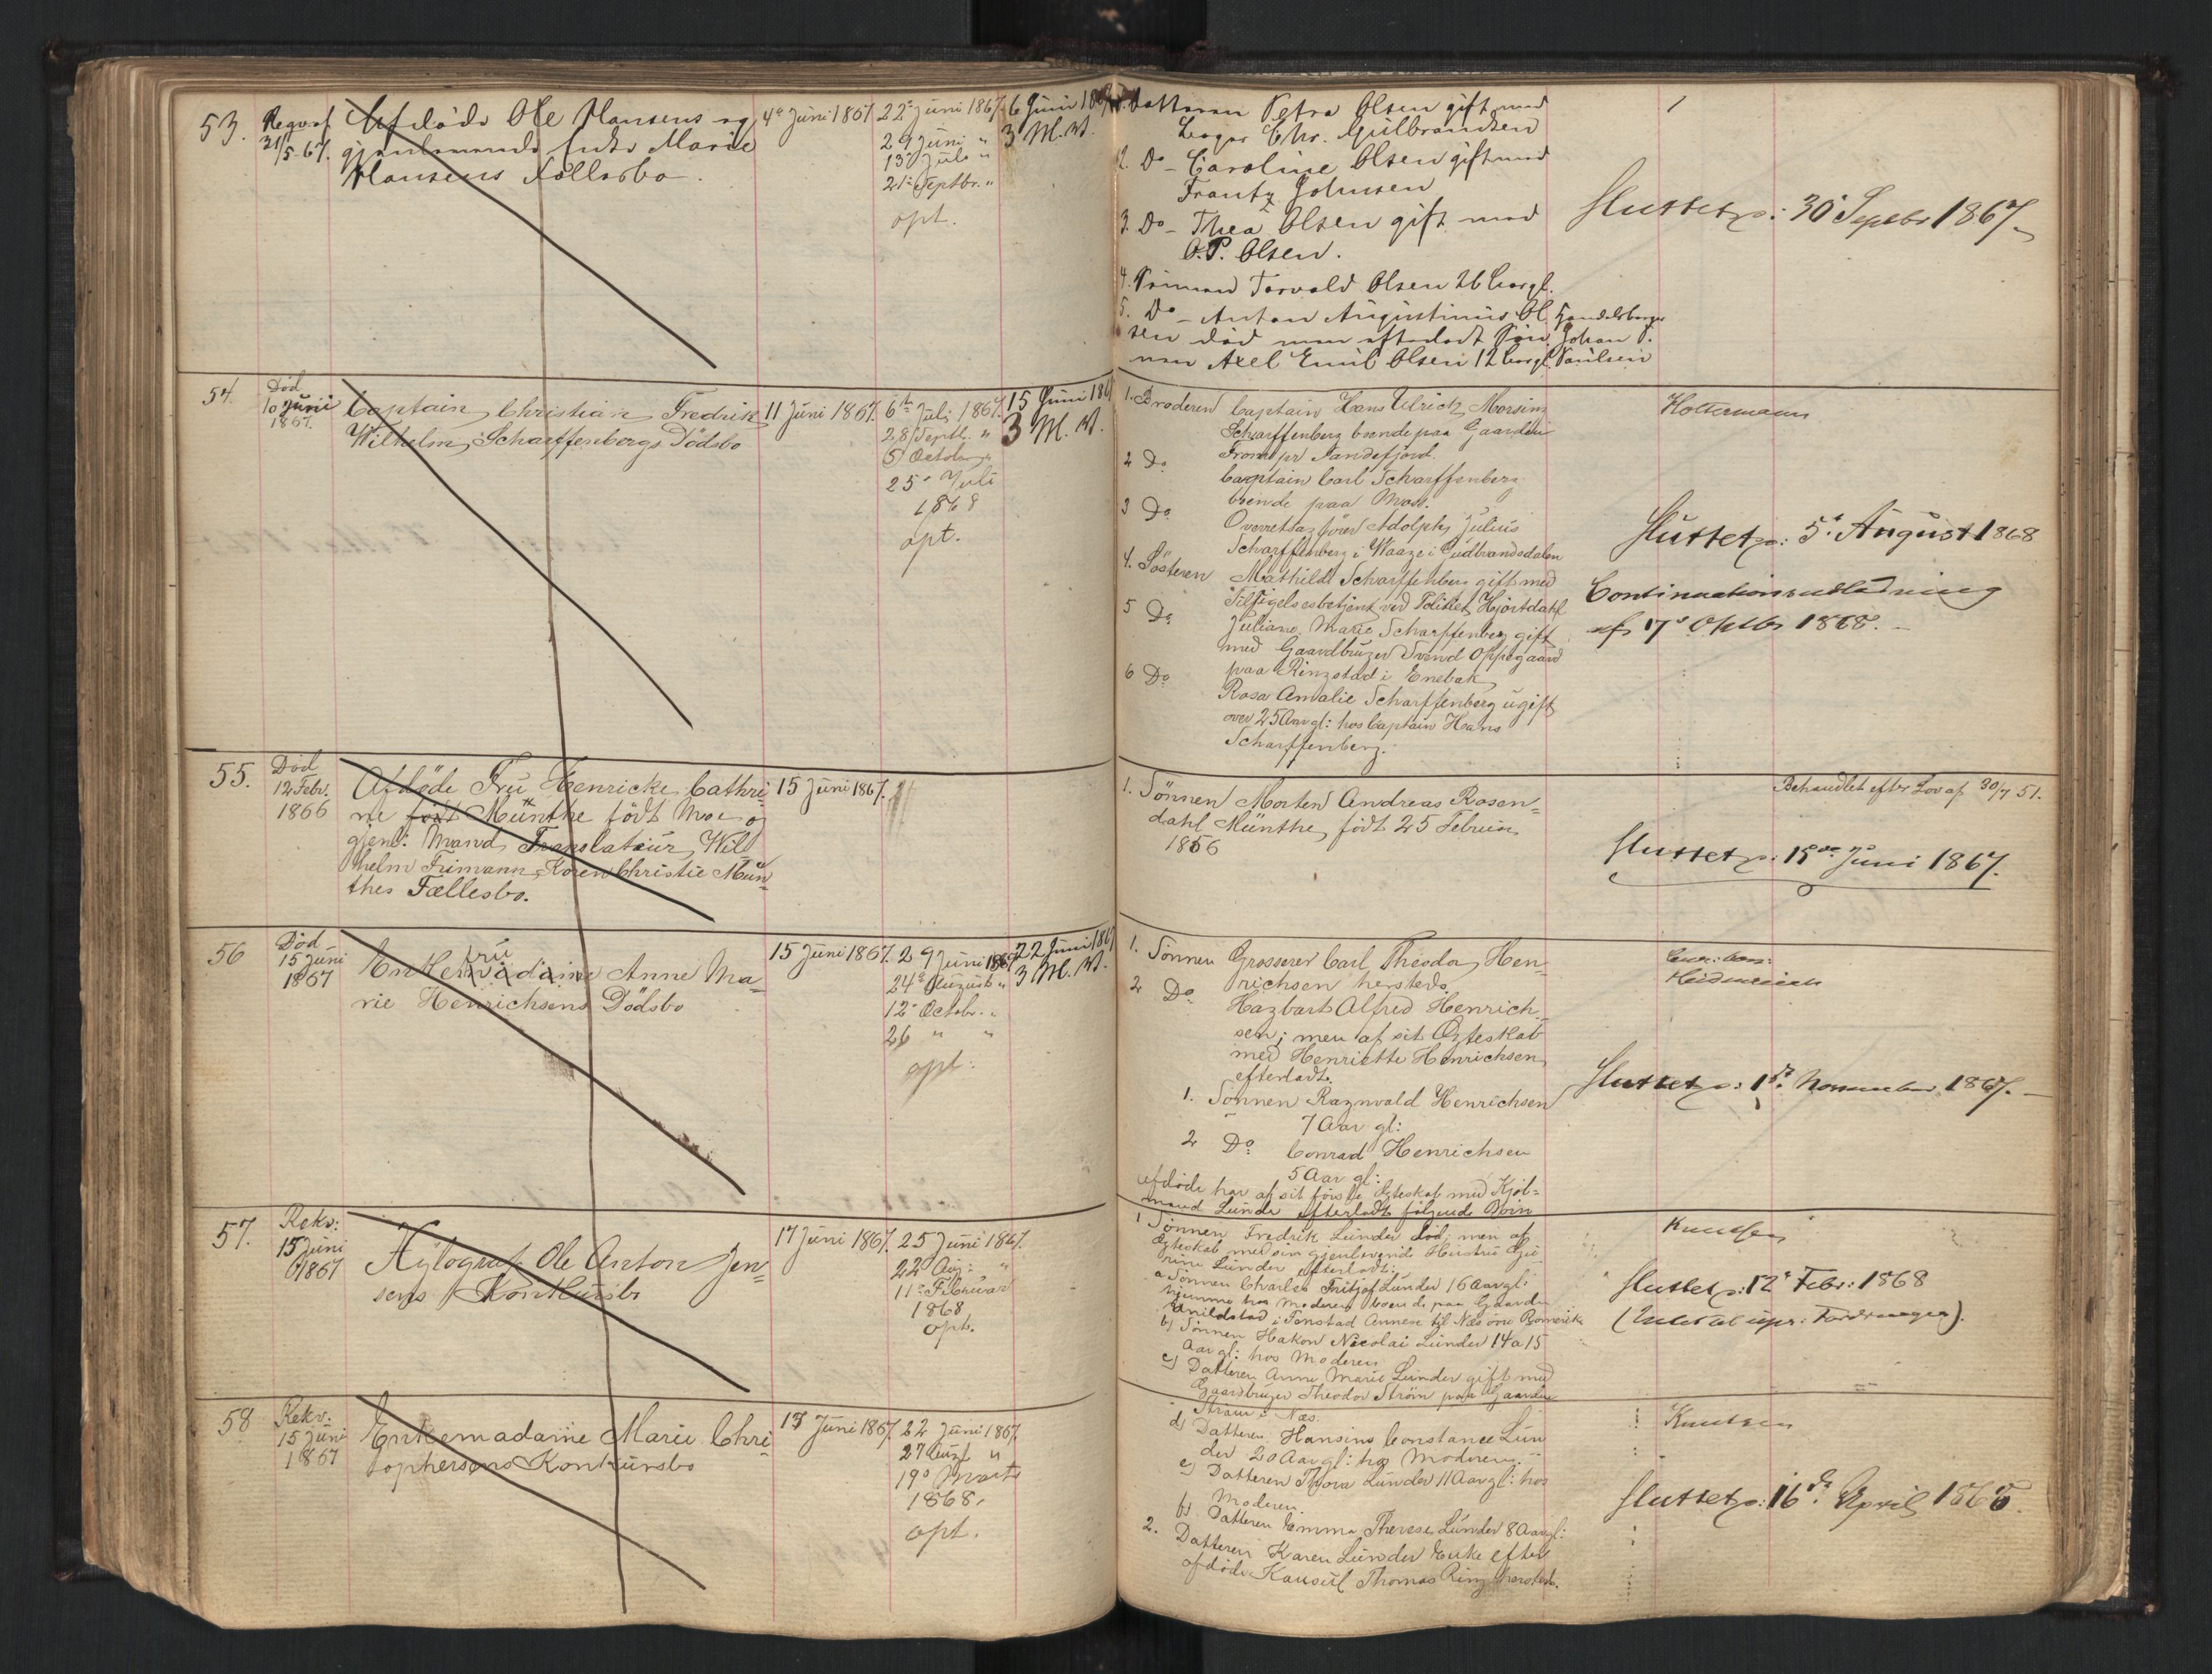 53.
Reqv. af
31/5. 67.
Afdöde Ole Hansens og
gjenlevende Enke Marie
Hansens Fællesbo.
4de Juni 1867
22de Juni 1867.
29 Juni "
13de Juli "
21de Septbr. "
opt.
6 Juni 1867
3 M. V.
1. Datteren Petra Olsen gift med
Chr. Gulbrandsen
2. Do - Caroline Olsen gift med
Frantz Johnsen
3. Do - Thea Olsen gift med
O. P. Olsen.
4. Sönnen Torvald Olsen 26 Aar gl.
5. Do - Anton Augustinus Ol
sen död men efterladt Sön
nen Axel Emil Olsen 12 Aar gl.
Handelsborger
Johan P.
Paulsen
1
Sluttet p: 30 Septbr 1867.
54.
Död
10 Juni
1867.
Captain Christian Fredrik
Wilhelm Scharffenbergs Dödsbo
11 Juni 1867.
6te Juli 1867.
28 Septb. "
5 October "
25de Juli
1868
opt.
15 Juni 1867
3 M. V.
1. Broderen Captain Hans Ulrich Morsing
Scharffenberg boende paa Gaarden
Fromo pr Sandefjord.
2 Do
Captain Carl Scharffenberg
boende paa Moss.
3 Do
Overretssagförer Adolph Julius
Scharffenberg i Waage i Gudbrandsdalen
4. Sösteren Mathilde Scharffenberg gift med
Tilsigelsesbetjent ved Politiet Hjortdahl
5 Do
Juliane Marie Scharffenberg gift
med Gaardbruger Svend Oppegaard
paa Ringstad i Enebak
6 Do
Rosa Amalie Scharffenberg ugift
over 25 Aar gl: hos Captain Hans
Scharffenberg.
Holtermann
Sluttet p: 5te August 1868
Continuationsudlodning
af 17de Octbr 1868.
55.
Död
12 Febr.
1866
Afdöde Fru Henricke Cathri-
ne födt Münthe födt Moe og
gjenl: Mand Translateur Wil
helm Frimann Koren Christie Mün-
thes Fællesbo.
15 Juni 1867.
1. Sönnen Morten Andreas Rosen-
dahl Münthe, födt 25 Februar
1856
Behandlet efter Lov af 30/7 51.
Sluttet p: 15de Juni 1867.
56
Död
15 Juni
1867
fru
Enkemadame Anne Ma-
rie Henrichsens Dödsbo
15 Juni 1867.
29 Juni 1867
24de August "
12de Octobr. "
26 " "
opt:
22 Juni 1867
3 M. V.
1. Sönnen Grosserer Carl Theodor Hen-
richsen hersteds.
2 Do
Hagbart Alfred Henrich-
sen; men af sit Ægteskab
med Henriette Henrichsen
efterladt.
1. Sönnen Ragnvald Henrichsen
7 Aar gl:
2 Do Conrad Henrichsen
5 Aar gl:
afdöde har af sit förste Ægteskab med Kjöb-
mand Lunde efterladt fölgende Börn
1 Sönnen Fredrik Lunder död; men af
Ægteskab med sin gjenlevende Hustru Gu-
rine Lunder efterladt:
a Sönnen Charles Fritjof Lunder 16 Aar gl:
hjemme hos Moderen boende paa Gaarden
i Fonstad Annex til Næs övre Romerike
b) Sönnen Hakon Nicolai Lunder 14 a 15
Aar gl: hos Moderen
c) Datteren Anna Marie Lunder gift med
Gaardbruger Theodor Ström paa Gaarden
Ström i Næs.
d) Datteren Hansine Constance Lun
der 20 Aar gl: hos Moderen.
e) Datteren Thora Lunder 11 Aar gl: hos
Moderen
f) Datteren Emma Therese Lunder 8 Aar gl:
2. Datteren Karen Lunder Enke efter
afdöde Konsul Thomas Ring hersteds.
Heidenreich
Sluttet p: 1ste November 1867.
57.
Rekv:
15 Juni
1867
Xylograf Ole Anton Jen-
sens Konkursbo
17 Juni 1867.
25 Juni 1867.
22de Aug: "
11te Februar
1868
opt.
Knudsen
Sluttet p: 12te Febr: 1868
(Intet til upr: Fordringer).
58
Rekv:
15 Juni
1867
Enkemadame Marie Chri
stophersens Konkursbo
17 Juni 1867.
22 Juni 1867.
27 Augt "
19de Marts
1868.
opt.
Knutsen
Sluttet p: 16de April 1868.